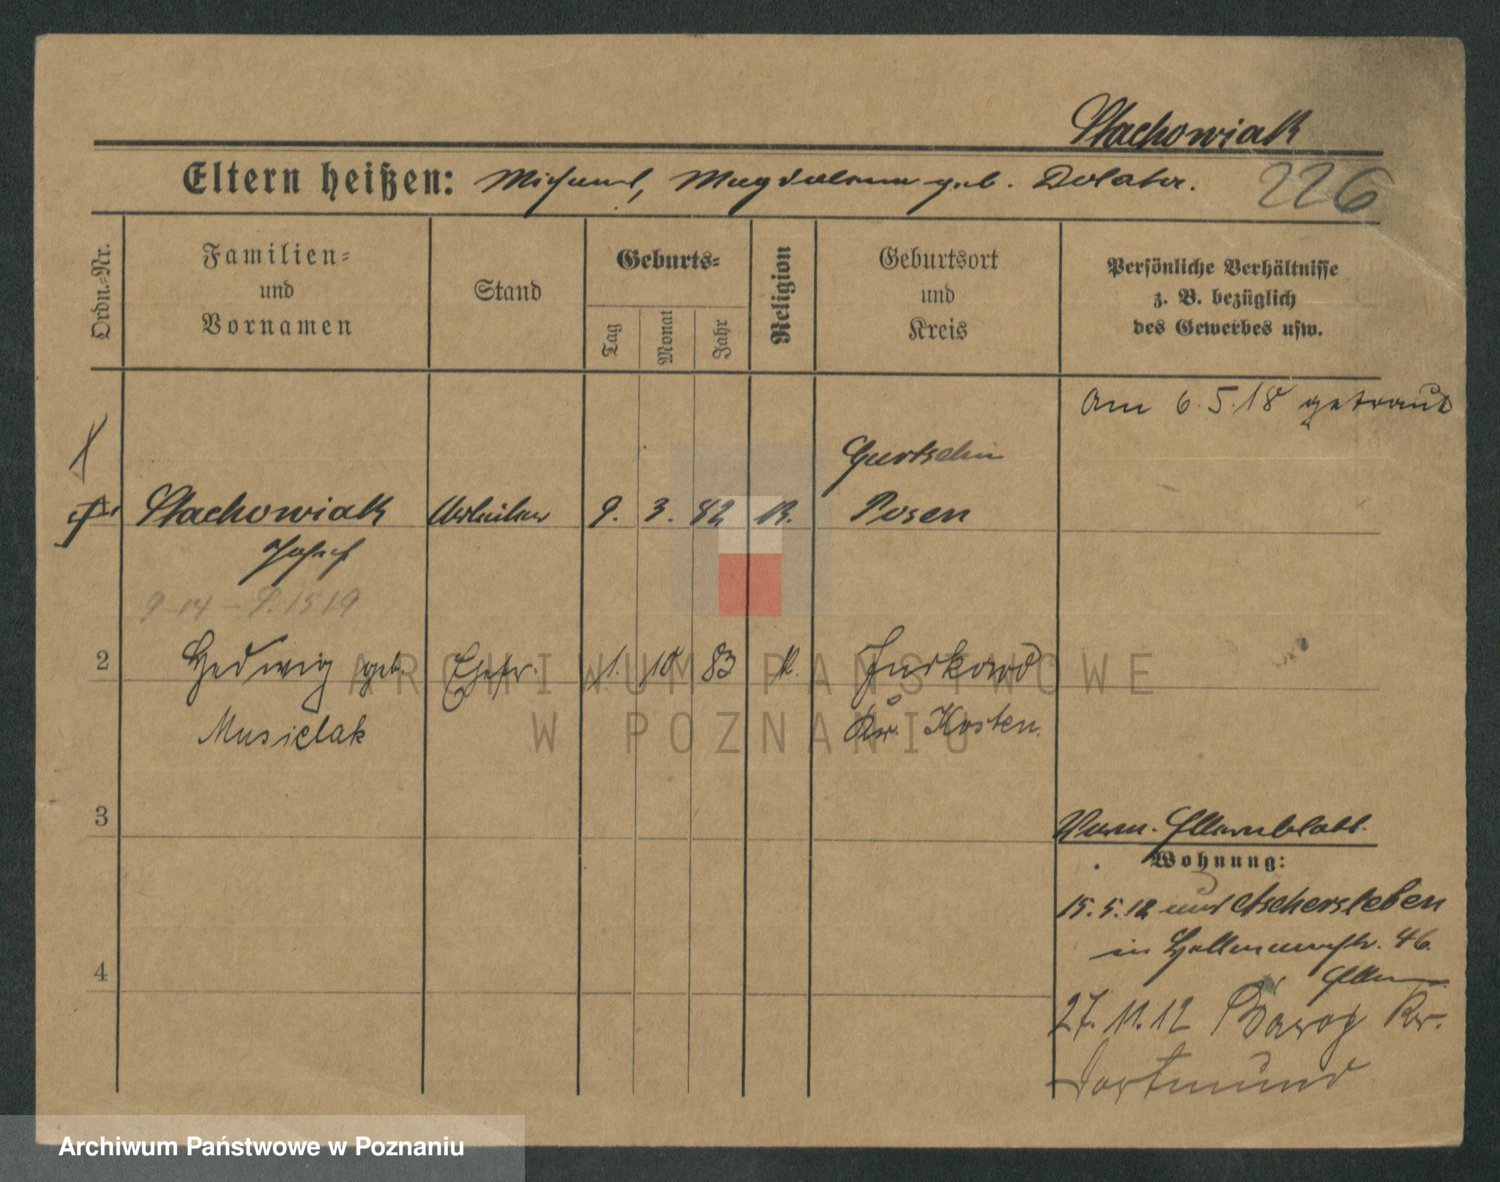 Stachowiak
Eltern heißen: Michael, Magdalena geb. Dolata.
226
Ordn.-Nr.
Familien-
und
Vornamen
Stand
Geburts-
Tag
Monat
Jahr
Religion
Geburtsort
und
Kreis
Persönliche Verhältnisse
z. B. bezüglich
des Gewerbes usw.
Am 6.5.18 getraut
Gurtschin
Stachowiak Arbeiter 9. 3. 82 K. Posen
Josef
2 Hedwig geb. Ehefr. 1. 10. 83 K. Jurkowo
Musielak Kr. Kosten.
3
Elternblatt.
Wohnung:
15.5.12 Aschersleben
in 46.
4
Eltern
27.11.12 Kr.
Dortmund
ARCHIWUM PAŃSTWOWE
W POZNANIU
Archiwum Państwowe w Poznaniu